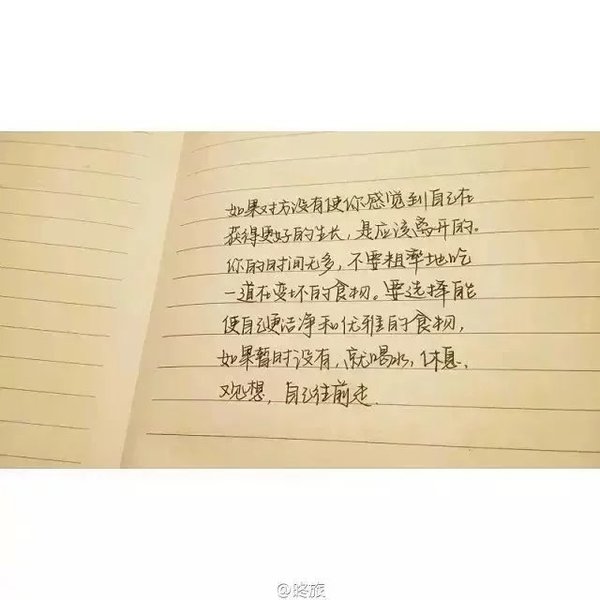 如果对方没有使你感觉到自己在
获得更好的生长，是应该离开的。
你的时间无多，不要粗率地吃
一道在变坏的食物。要选择能
使自己更洁净和优雅的食物，
如果暂时没有，就喝水，休息，
观想，自己往前走.
@咚旅